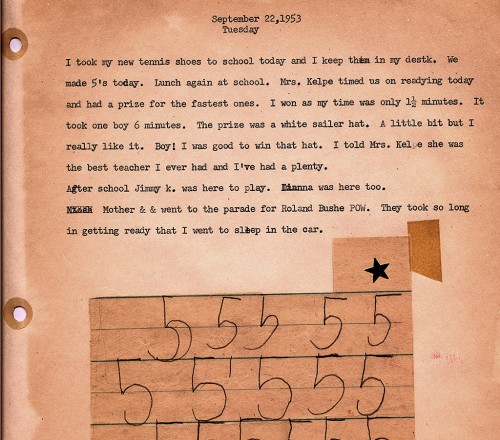 September 22,1953
Tuesday
I took my new tennis shoes to school today and I keep them in my destk. We
made 5's today. Lunch again at school. Mrs. Kelpe timed us on readying today
and had a prize for the fastest ones. I won as my time was only 1½ minutes. It
took one boy 6 minutes. The prize was a white sailer hat. A little bit but I
really like it. Boy! I was good to win that hat. I told Mrs. Kelpe she was
the best teacher I ever had and I've had a plenty.
After school Jimmy k. was here to play. Dianna was here too.
Mother & & went to the parade for Roland Bushe POW. They took so long
in getting ready that I went to sleep in the car.
5 5 5 5 5
5 5 5 5 5
5 5 5 5 5